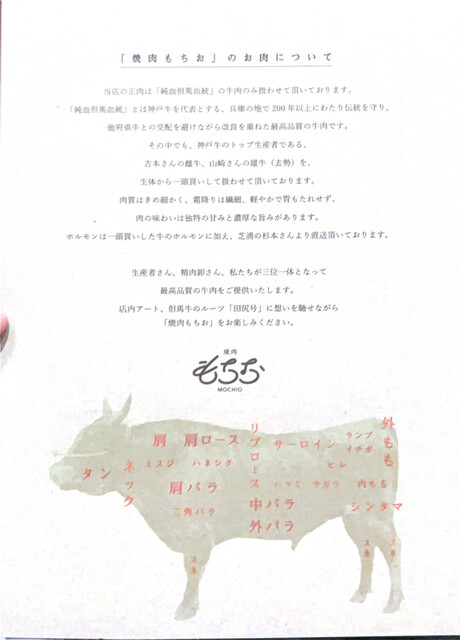 「焼肉もちお」のお肉について
当店の正肉は「純血但馬血統」の牛肉のみ扱わせて頂いております。
「純血但馬血統」とは神戸牛を代表とする、兵庫の地で200年以上にわたり伝統を守り、
他府県牛との交配を避けながら改良を重ねた最高品質の牛肉です。
その中でも、神戸牛のトップ生産者である、
古本さんの雌牛、山崎さんの雄牛（去勢）を、
生体から一頭買いして扱わせて頂いております。
肉質はきめ細かく、霜降りは繊細、軽やかで胃もたれせず、
肉の味わいは独特の甘みと濃厚な旨みがあります。
ホルモンは一頭買いした牛のホルモンに加え、芝浦の杉本さんより直送頂いております。
生産者さん、精肉卸さん、私たちが三位一体となって
最高品質の牛肉をご提供いたします。
店内アート、但馬牛のルーツ「田尻号」に想いを馳せながら
「焼肉もちお」をお楽しみください。
焼肉
もちお
MOCHIO
タン
ネック
肩
肩ロース
ミスジ
ハネシタ
肩バラ
三角バラ
リブロース
サーロイン
ランプ
イチボ
外もも
ヒレ
ハラミ
サガリ
内もも
シンタマ
中バラ
外バラ